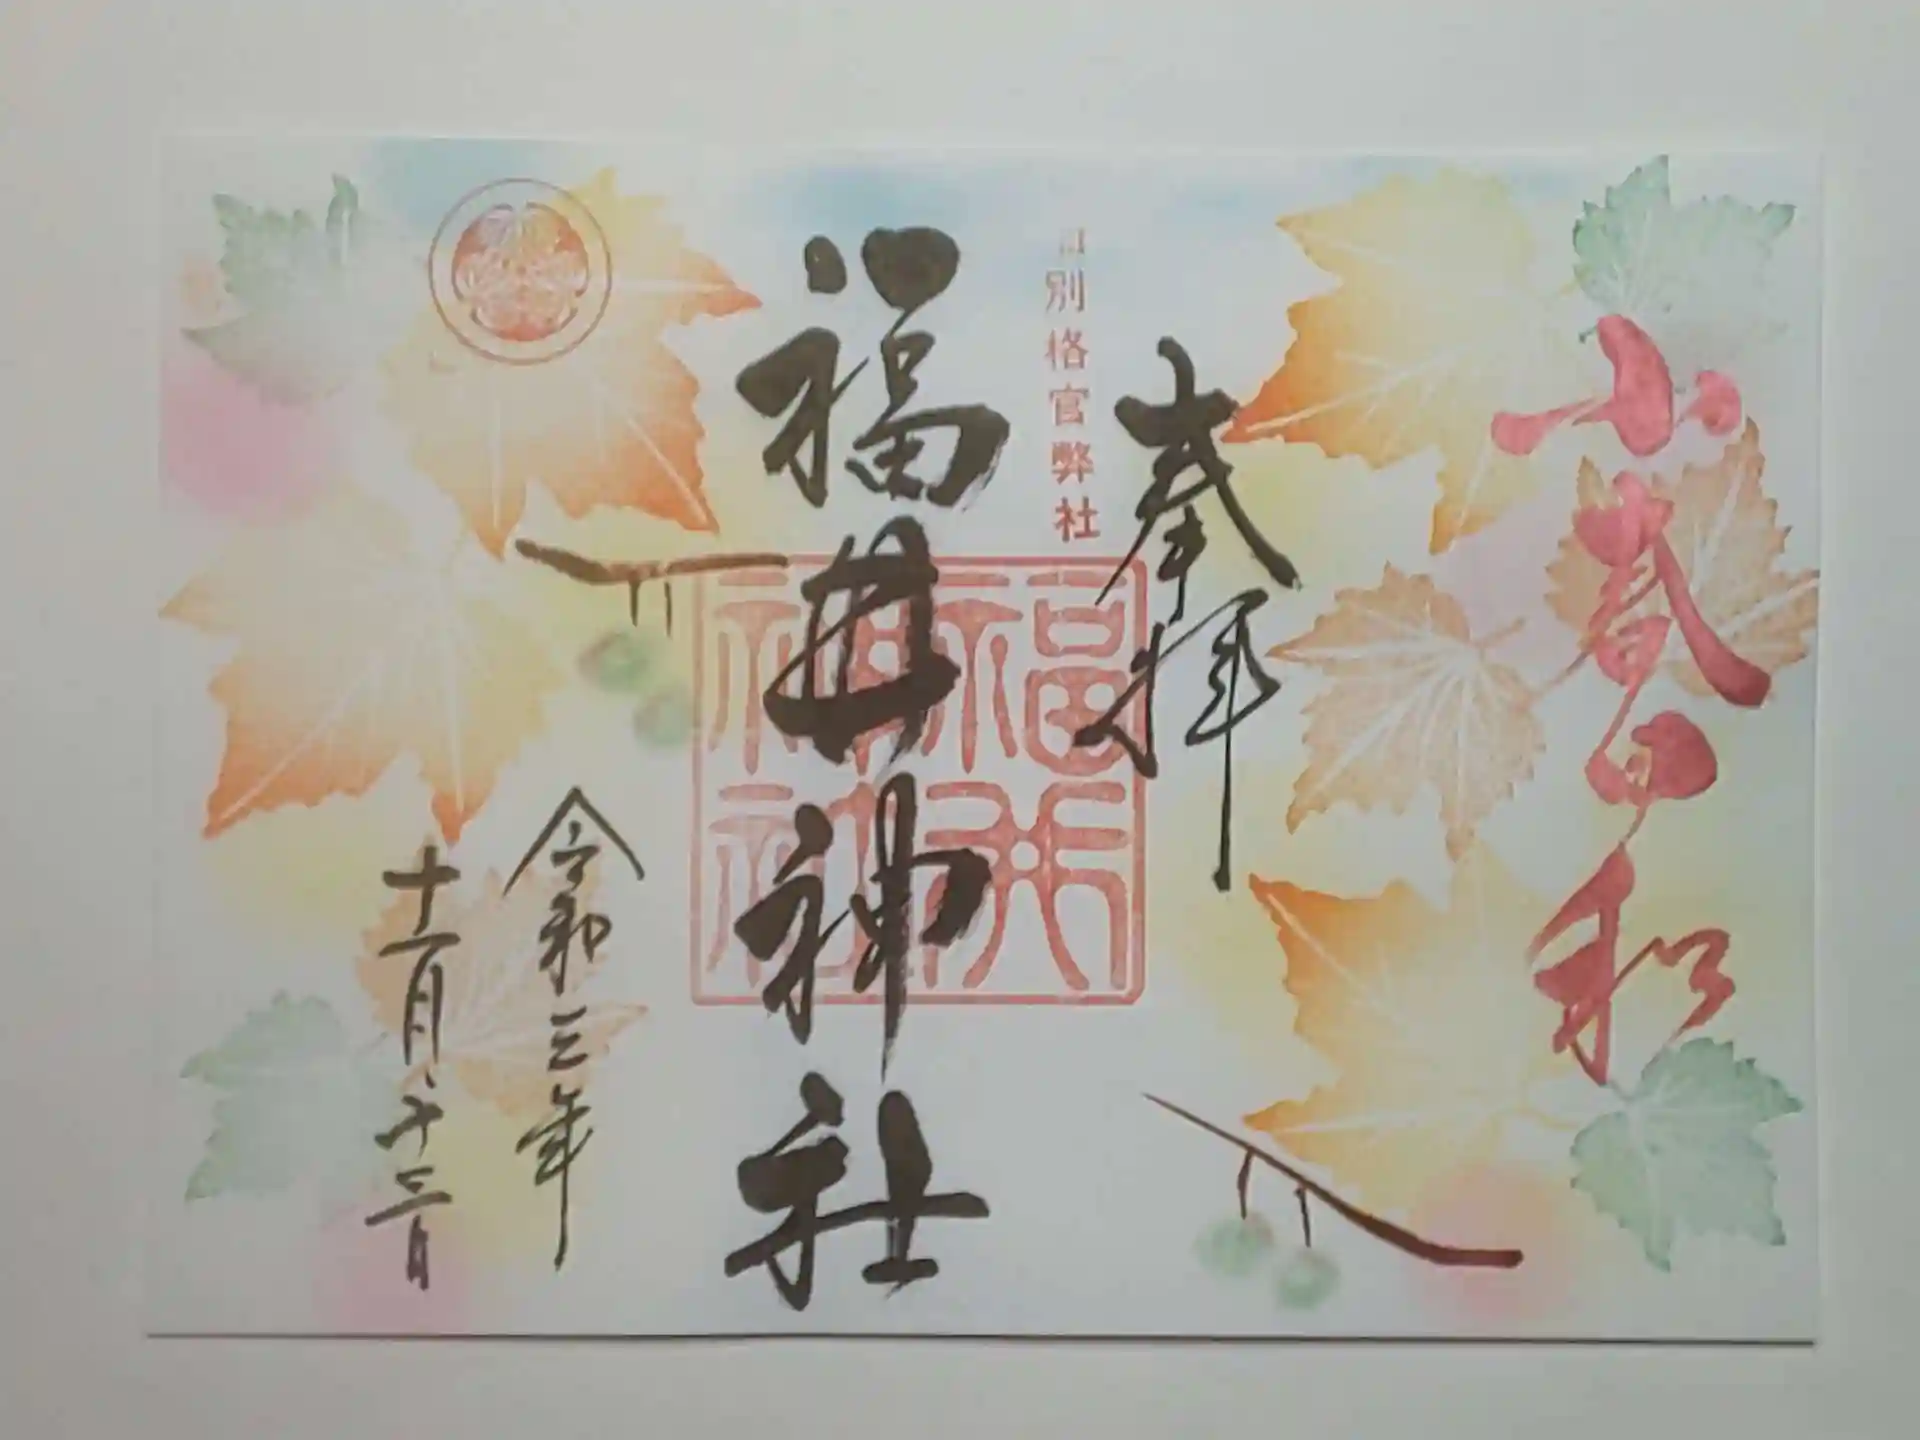 小春日和
奉拝
別格官弊社
福井神社
福井
神社
令和三年
十一月二十三日